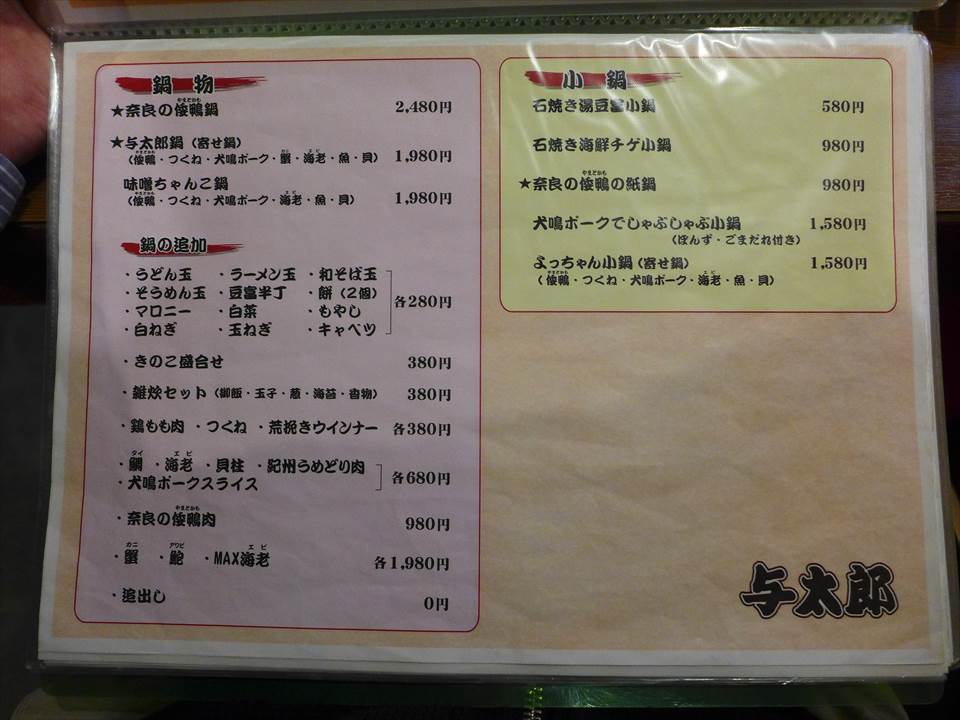 鍋物
★奈良の倭鴨鍋 2,480円
やまとかも
★与太郎鍋（寄せ鍋）
（倭鴨・つくね・犬鳴ポーク・蟹・海老・魚・貝） 1,980円
味噌ちゃんこ鍋
（倭鴨・つくね・犬鳴ポーク・海老・魚・貝） 1,980円
鍋の追加
・うどん玉 ・ラーメン玉 ・和そば玉
・そうめん玉 ・豆富半丁 ・餅（2個） 各280円
・マロニー ・白菜 ・もやし
・白ねぎ ・玉ねぎ ・キャベツ
・きのこ盛合せ 380円
・雑炊セット（御飯・玉子・葱・海苔・香物） 380円
・鶏もも肉 ・つくね ・荒挽きウインナー 各380円
タイ エビ
・鯛 ・海老 ・貝柱 ・紀州うめどり肉
・犬鳴ポークスライス 各680円
やまとかも
・奈良の倭鴨肉 980円
カニ アワビ エビ
・蟹 ・鮑 ・MAX海老 各1,980円
・追出し 0円
小鍋
石焼き湯豆富小鍋 580円
石焼き海鮮チゲ小鍋 980円
やまとかも
★奈良の倭鴨の紙鍋 980円
犬鳴ポークでしゃぶしゃぶ小鍋 1,580円
（ぽんず・ごまだれ付き）
よっちゃん小鍋（寄せ鍋） 1,580円
（倭鴨・つくね・犬鳴ポーク・海老・魚・貝）
与太郎